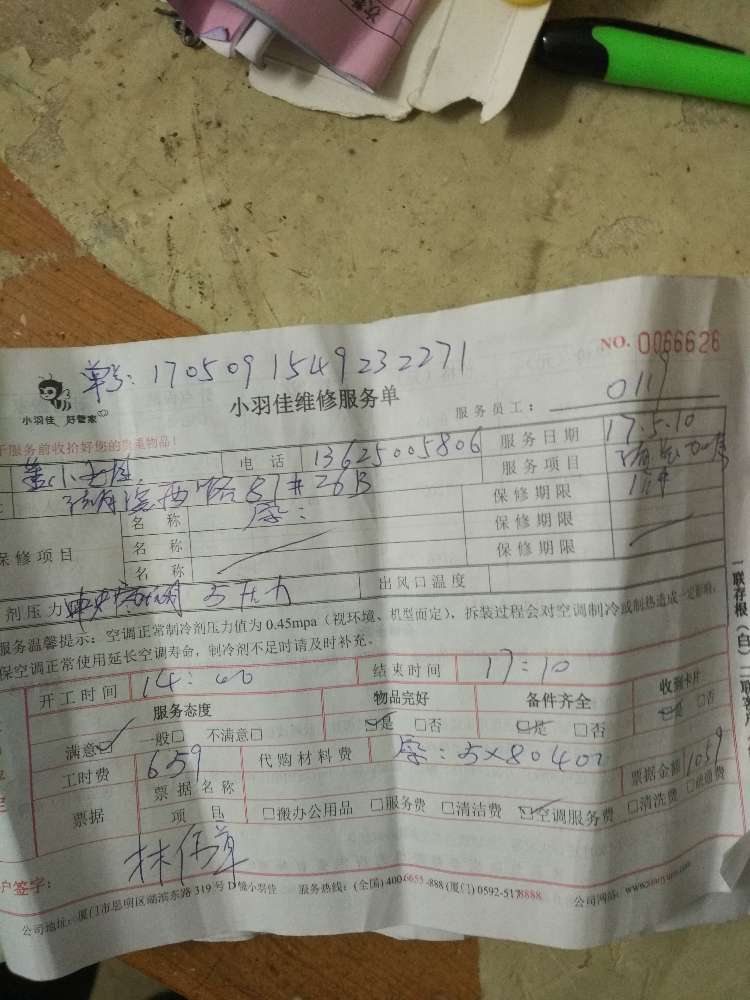 NO. 0066626
单号: 170509 1549232271
小羽佳 好管家
小羽佳维修服务单
服务员工: 0119
于服务前收拾好您的贵重物品!
电话 13625005806 服务日期 17.5.10
服务项目
西路81# 26B 保修期限 1年
保修项目 名称 保修期限
名称 保修期限
名称
剂压力 出风口温度
服务温馨提示: 空调正常制冷剂压力值为 0.45mpa (视环境、机型而定), 拆装过程会对空调制冷或制热造成一定影响,
保空调正常使用延长空调寿命, 制冷剂不足时请及时补充。
开工时间 14:00 结束时间 17:10
服务态度 物品完好 备件齐全 收到卡片
满意☑ 一般□ 不满意□ ☑是 □否 ☑是 □否 ☑是 □否
工时费 659 代购材料费 5×80 400 票据金额 1059
票据 票据名称
项目 □搬办公用品 □服务费 □清洁费 ☑空调服务费 □清洗费 □疏通费
户签字: 林
公司地址: 厦门市思明区湖滨东路 319 号 D 幢小羽佳 服务热线: (全国) 400-6655-888 (厦门) 0592-5178888 公司网站:
一联存根(白) 二联